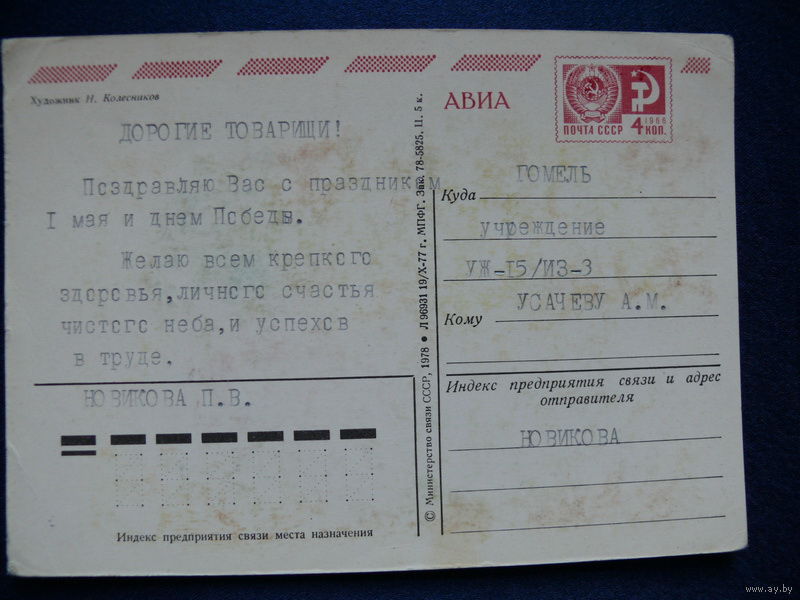 Художник Н. Колесников
ДОРОГИЕ ТОВАРИЩИ!
Поздравляю Вас с праздником
I мая и днем Победы.
Желаю всем крепкого
здоровья,личного счастья
чистого неба,и успехов
в труде.
НОВИКОВА П.В.
Индекс предприятия связи места назначения
© Министерство связи СССР, 1978 ● Л 96931 19/X-77 г. МПФГ. Зак. 78-5825. Ц. 5 к.
АВИА
ПОЧТА СССР
1966
4 КОП.
Куда ГОМЕЛЬ
учреждение
УЖ-I5/ИЗ-3
Кому УСАЧЕВУ А.М.
Индекс предприятия связи и адрес
отправителя
НОВИКОВА
www.ay.by